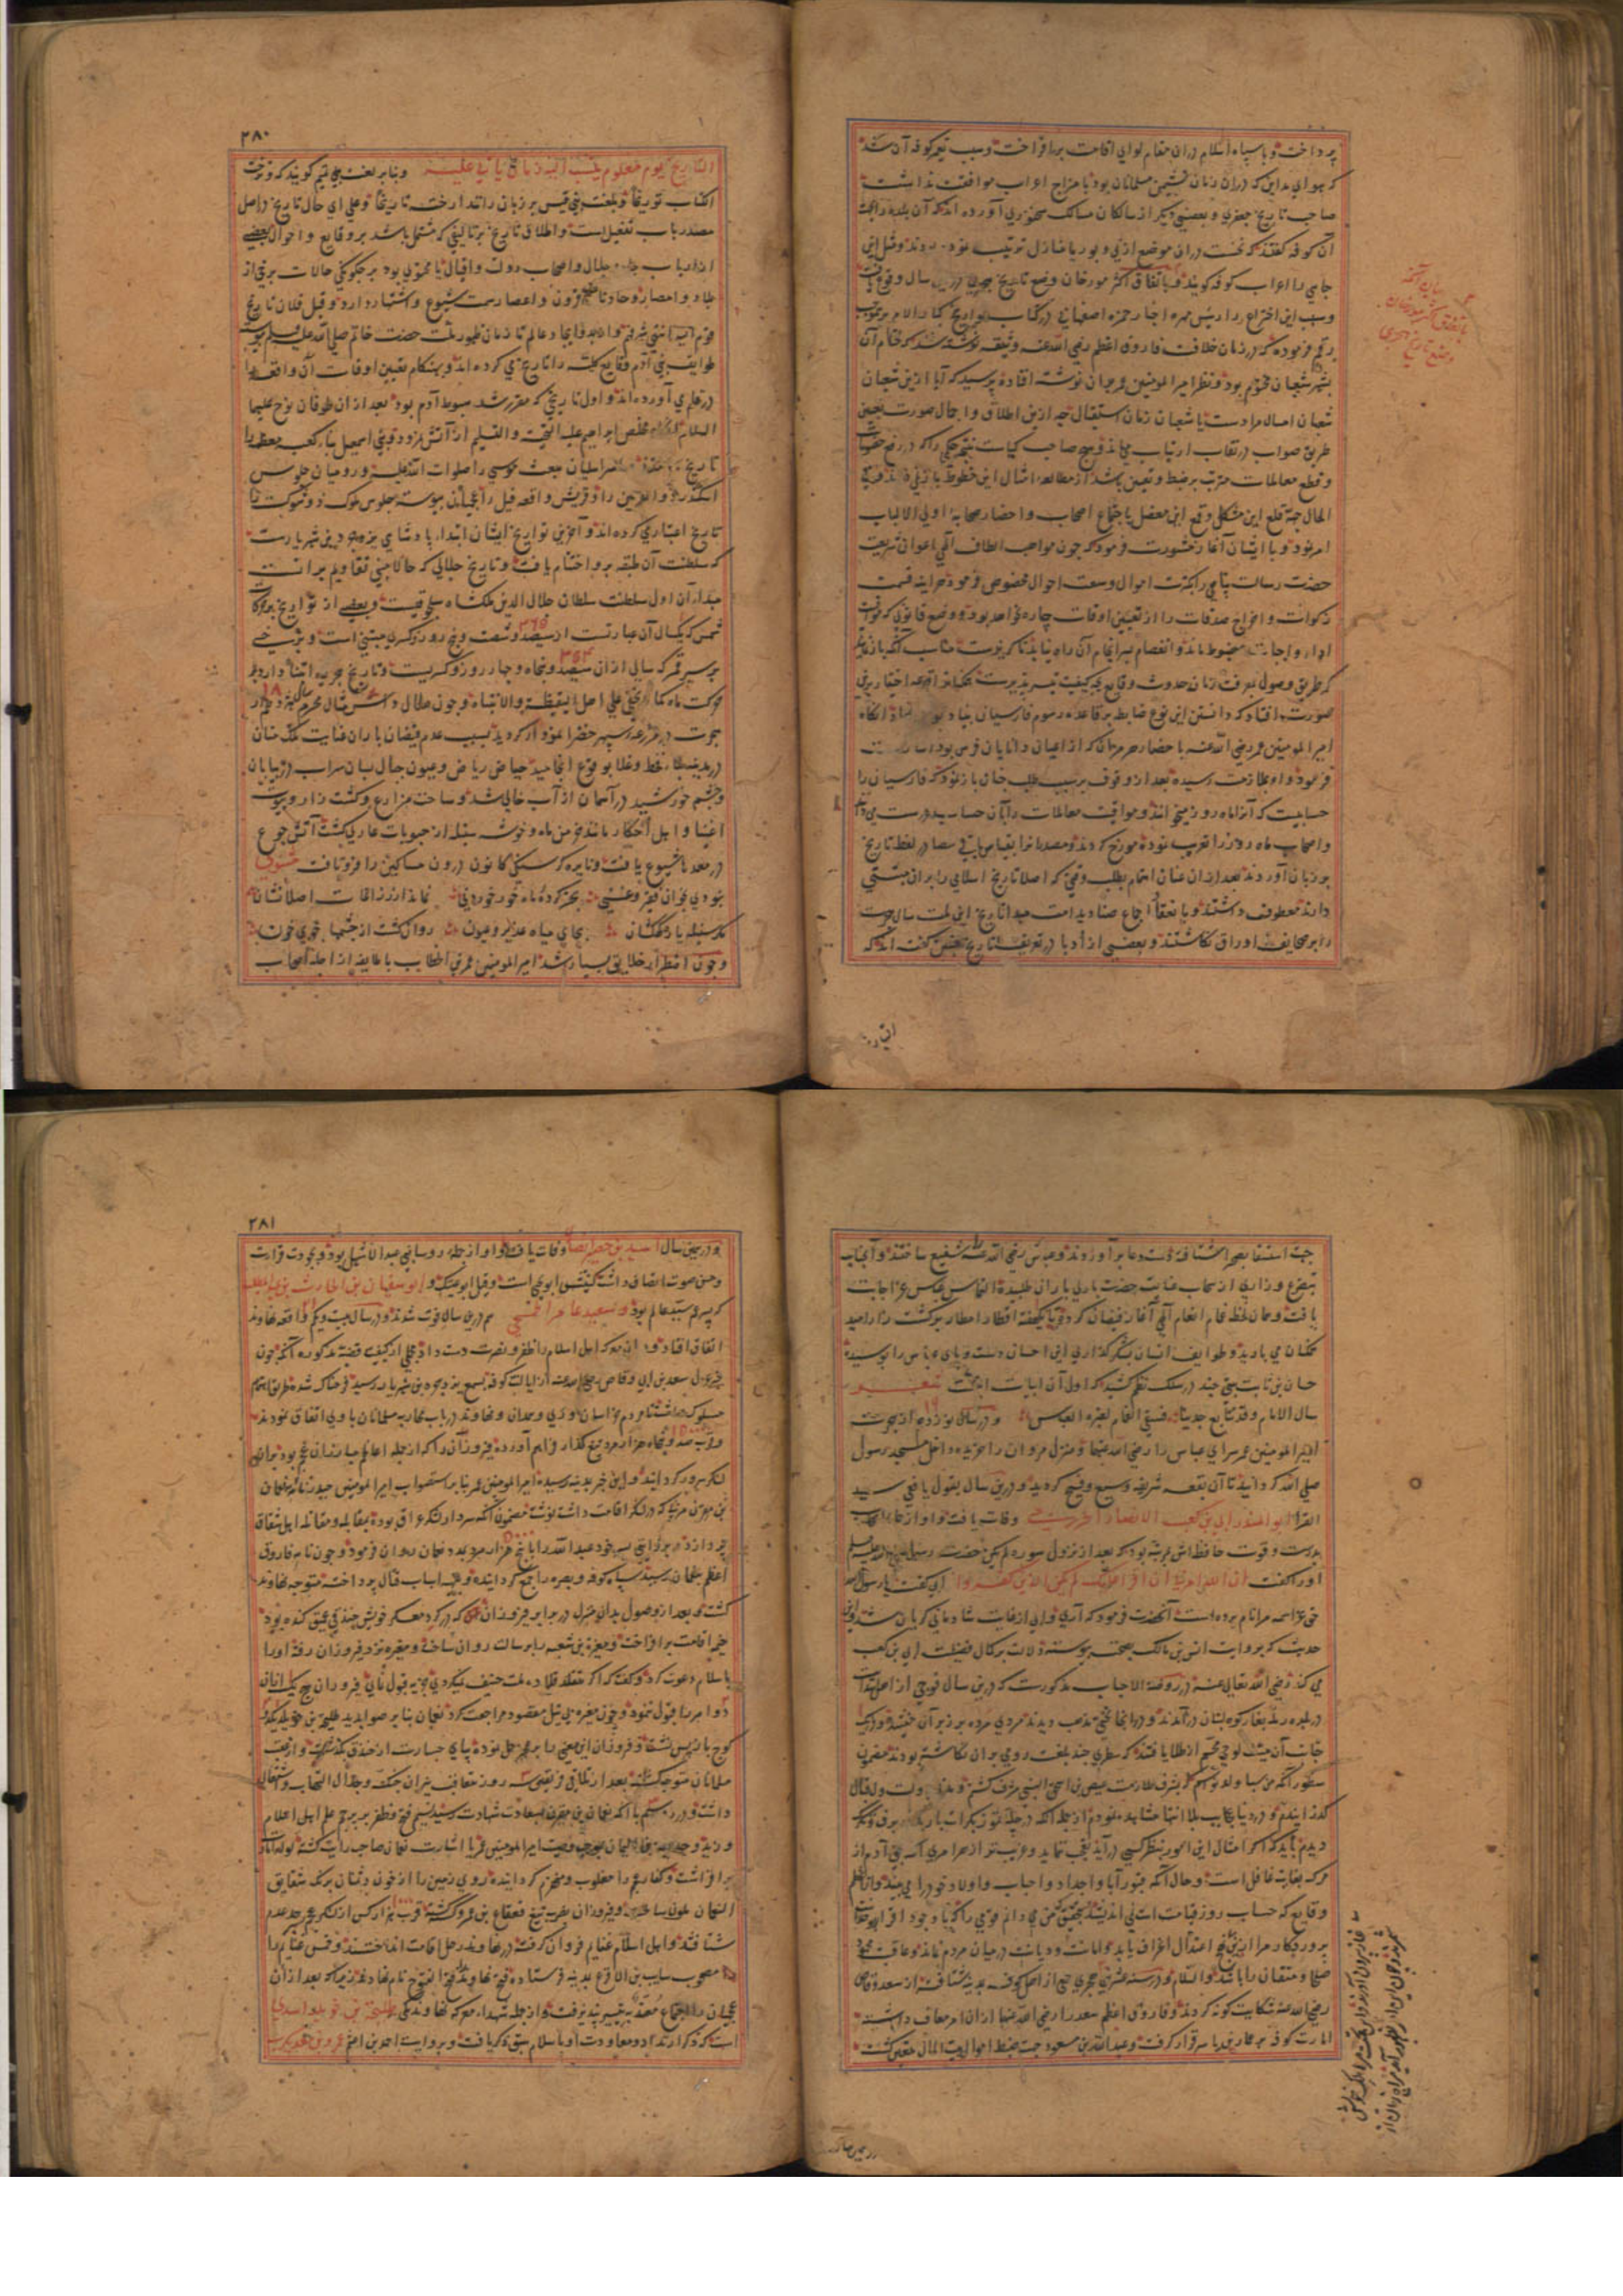 پرداخت و با سپاه اسلام دران مقام لوای اقامت برافراخت و سبب تعمیر کوفه آن شد
که هوای مداین که دران زمان نشیمن مسلمانان بود با مزاج اعراب موافقت نداشت
صاحب تاریخ جعفری و بعضی دیگر از سالکان مسالک سخنوری آورده اند که آن بلده را بجهت
آن کوفه گفتند که نخست دران موضع از نی و بوریا منازل ترتیب نموده بودند و قبل ازین
جایی را اعراب کوفه گویند و باتفاق اکثر مورخان وضع تاریخ هجری درین سال وقوع یافت
بیان آنکه
باتفاق اکثر مورخان
وضع تاریخ هجری
و سبب این اختراع را رئیس مهره اخبار حمزه اصفهانی در کتاب تواریخ کبار الامم
رقم فرموده که در زمان خلافت فاروق اعظم رضی الله عنه وثیقه نوشته شد که ختام آن
بشهر شعبان مختوم بود و نظر امیر المومنین عمر بران نوشته افتاده پرسید که آیا ازین شعبان
شعبان امسال مرادست یا شعبان زمان استقبال چه ازین اطلاق و اجمال صورت تعیین
طریق صواب در نقاب ارتیاب می ماند و هیچ صاحب کیاست
و قطع معاملات مترتب بر ضبط و تعیین باشد از مطالعه امثال این خطوط
الحال جهة قلع این مشکل و قمع این معضل باجتماع اصحاب و احضار صحابه اولی الالباب
امر نمود و با ایشان آغاز مشورت فرمود که چون مواهب الطاف الهی اعوان شریعت
حضرت رسالت پناهی را بکثرت اموال و سعت احوال مخصوص فرموده هر اینه قسمت
زکوات و اخراج صدقات را از تعیین اوقات چاره نخواهد بود و وضع قانونی که
اداء و اجابت مضبوط ماند و انفصام بسر انجام آن راه نیابد
که طریق وصول بمعرفت زمان حدوث وقایع بچه کیفیت تیسیر پذیرست
صورت افتاد که دانستن این نوع ضابطه بر قاعده رسوم فارسیان بنیاد
امیر المومنین عمر رضی الله عنه باحضار هرمزان که از اعیان دانایان فرس بود
فرمود و او بملازمت رسیده بعد از وقوف بر سبب طلب چنان باز نمود که فارسیان را
حسابیست که آنرا ماه روز میخوانند و مواقیت معاملات را بآن حساب
و اصحاب ماه روز را تعریب نموده مورخ کردند و مصدر آنرا بقیاس باقی مصادر لفظ تاریخ
بر زبان آوردند بعد ازان عنان اهتمام بطلب وقتی که اصل تاریخ اسلامی را بران مبتنی
دارند معطوف داشتند و باتفاق اجماع صنادید امت مبدا تاریخ این ملت سال هجرت
را بر صحایف اوراق نگاشتند و بعضی از ادبا در تعریف تاریخ چنین گفته اند که
۲۸۰
التاریخ یوم معلوم ینسب الیه زمان یاتی علیه و بنا بر لغت بنی تمیم گویند که ورخت
الکتاب توریخا و بلغت بنی قیس بر زبان رانند ارخته تاریخا و علی ای حال تاریخ در اصل
مصدر باب تفعیل است و اطلاق تاریخ بر تالیفی که مشتمل باشد بر وقایع و احوال بعضی
از ارباب جاه و جلال و اصحاب دولت و اقبال یا محتوی بود بر چگونگی حالات برخی از
بلاد و امصار و حادثات قرون و اعصار سمت شیوع و اشتهار دارد و قبل فلان تاریخ
قومه ای انتهی شرفهم و از بدو ایجاد عالم تا زمان ظهور ملت حضرت خاتم صلی الله علیه و سلم
طوایف بنی آدم وقایع کلیه را تاریخ می کرده اند و بهنگام تعیین اوقات آن واقعه را
در قلم می آورده اند و اول تاریخی که مقرر شد هبوط آدم بود بعد ازان طوفان نوح علیهما
السلام آنگاه مخلص ابراهیم علیه التحیه و التسلیم از آتش نمرود و بنی اسمعیل بناء کعبه معظمه را
تاریخ ساختند و اسرائیلیان مبعث موسی را صلوات الله علیه و رومیان جلوس
اسکندر ذو القرنین را و قریش واقعه فیل را و عجمیان پیوسته جلوس ملوک ذو شوکت را
تاریخ اعتبار می کرده اند و آخرین تواریخ ایشان ابتداء پادشاهی یزدجرد بن شهریارست
که سلطنت آن طبقه برو اختتام یافت و تاریخ جلالی که حالا مبنی تقاویم برانست
مبداء آن اول سلطنت سلطان جلال الدین ملکشاه سلجوقیست و بعضی از تواریخ
شمس که یکسال آن عبارتست از سیصد و شصت و پنج روز و کسری مبتنی است و برخی
بر سیر قمر که سالی ازان سیصد و پنجاه و چهار روز و کسریست و تاریخ هجریه ابتنا دارد بر
حرکت ماه کما لا یخفی علی اهل الیقظه و الانتباه و چون هلال محرم سال هژدهم از
هجرت در مزرعه سپهر خضرا نمودار گردید بسبب عدم فیضان باران عنایت ملک منان
در مدینه طیبه قحط و غلا بوقوع انجامید حیاض ریاض و عیون جبال بسان سراب در بیابان
و چشم خورشید در آسمان از آب خالی شد و ساحت مزارع و کشت زار و بیوت
اغنیا و اهل احتکار مانند خرمن ماه و خوشه سنبله از حبوبات عاری گشت آتش جوع
در معده ها شیوع یافت و نایره گرسنگی کانون درون مساکین را فروتافت مثنوی
نبودی بخوان فقیر و غنی بجز گرده ماه و خور خوردنی نماند از زراعات اصلا نشان
مگر سنبله با ره کهکشان بجای میاه غدیر و عیون روان گشت از چشمها جوی خون
و چون اضطرار خلایق بسیار شد امیر المومنین عمر بن الخطاب با طایفه از اجله اصحاب
جهت استسقا بصحرا شتافته دست دعا بر آوردند و عباس رضی الله عنه شفیع ساختند و آنجناب
بتضرع و زاری از سحاب عنایت حضرت باری باران طلبیده التماس عباس عز اجابت
یافت و همان لحظه غمام انعام الهی آغاز فیضان کرده تا یکهفته اقطار امطار بر کشت زار امید
ممکنان می بارید و طوایف انسان بشکر گذاری این احسان دست و پای عباس را بوسیدند
حسان بن ثابت بیتی چند در سلک نظم کشید که اول آن ابیات اینست شعر
سال الامام و قد تتابع جدبنا فسقی الغمام بغرة العباس و در سال نوزدهم از هجرت
امیر المومنین عمر سرای عباس را رضی الله عنهما و منزل مروان را خریده داخل مسجد رسول
صلی الله گردانید تا آن بقعه شریفه وسیع و فسیح گردید و درین سال بقول یافعی سید
القرا ابو المنذر ابی بن کعب الانصاری الخزرجی وفات یافت و او از
بدرست و قوت حافظه اش بمرتبه بود که بعد از نزول سوره لم یکن حضرت رسول صلی الله علیه و سلم
او را گفت ان الله امرنی ان اقرا علیک لم یکن الذین کفروا ابی گفت یا رسول الله
حق عز اسمه مرا نام برده است آنحضرت فرمود که آری و ابی از غایت شادمانی گریان شد و این
حدیث که بروایت انس بن مالک بصحت پیوسته دلالت بر کمال فضیلت ابی بن کعب
می کند رضی الله تعالی عنه و در روضة الاحباب مذکورست که درین سال فوجی از اهل
در بغار کوه لبنان در آمدند و در انجا تختی مذهب دیدند مردی مرده بر زبر آن خفته و در
جانب آن میت لوحی عظیم از طلا یافتند که سطری چند بلغت رومی بران نگاشته بودند مضمون
سطور آنکه من سبا ولد نواس بشرف ملازمت عیص بن اسحق النبی مشرف گشتم
گذرانیدم و در دنیا عجایب بلا انتها مشاهده نمودم از جمله آنکه
دیدم باید که اگر امثال این امور بنظر کسی در آید تعجب نماید و غریب تر از هر امری آنکه بنی آدم از
مرگ بغایت غافل است و حال آنکه قبور آبا و اجداد و احباب و اولاد خود را می بیند
وقایع که حساب روز قیامت است نمی اندیشد بتحقیق من می دانم قومی را که با وجود اقرار
صلحا و متقیان را باشد و السلام و در سنه عشرین هجری جمعی از اهل کوفه بمدینه شتافته از سعد وقاص
رضی الله عنه شکایت گونه کردند و فاروق اعظم سعد را رضی الله عنهما ازان امر معاف داشته
امارت کوفه بر عمار بن یاسر قرار گرفت و عبد الله بن مسعود جهت ضبط اموال بیت المال متعین گشت
۲۸۱
و در همین سال اسید بن حضیر انصاری وفات یافت و او از جمله روساء بنی عبد الاشهل بود و بجودت قرات
و حسن صوت اتصاف داشت کنیتش ابو یحیی است و قیل ابو عتیک و ابو سفیان بن الحارث بن عبد المطلب
که پسر عم سید عالم بود و سعید عامر الجمحی هم درین سال فوت شدند و در سال بیست و یکم واقعه نهاوند
اتفاق افتاد و دران معرکه اهل اسلام را ظفر و نصرت دست داد مجملی از کیفیت قضیه مذکوره آنکه چون
خبر عزل سعد بن ابی وقاص رضی الله عنه از ایالت کوفه بسمع یزدجرد بن شهریار رسید فرحناک شد طریق اهتمام
مسلوک داشت تا مردم خراسان و ری و همدان و نهاوند در باب محاربه مسلمانان با وی اتفاق نمودند
و قریب صد و پنجاه هزار مرد تیغ گذار فراهم آورده فیروزان را که از جمله اعاظم مبارزان عجم بود بران
لشکر سرور گردانید و این خبر بمدینه رسیده امیر المومنین عمر بنا بر استصواب امیر المومنین حیدر نامه بنعمان
بن مقرن مزنی که در لشکر اقامت داشت نوشت مضمون آنکه سردار لشکر عراق بوده بمقابله و مقاتله اهل شقاق
پردازد و پسر خود عبد الله را با پنج هزار مرد بمدد نعمان روان فرمود و چون نامه فاروق
اعظم بنعمان رسید سپاه کوفه و بصره را جمع گردانیده و بتهیه اسباب قتال پرداخته متوجه نهاوند
گشت و بعد از وصول بدان منزل در برابر فیروزان که در گرد معسکر خویش خندقی عمیق کنده بود
خیمه اقامت برافراخت و مغیرة بن شعبه را برسالت روان ساخت و مغیره نزد فیروزان رفته او را
باسلام دعوت کرد و گفت که اگر متقلد قلاده ملت حنیف نمیگردی جزیه قبول نمای فیروزان هیچ یک ازان
دو امر را قبول ننمود و چون مغیره بی نیل مقصود مراجعت کرد نعمان بنا بر صوابدید طلیحه بن خویلد یک
کوچ باز پس نشست و فیروزان این معنی را بر عجز حمل نموده پای جسارت از خندق بگذشت و از عقب
مسلمانان متوجه گشت بعد از تلاقی فریقین سه روز متعاقب نیران جنگ و جدال التهاب و اشتعال
داشت و در روز سیم با آنکه نعمان بن مقرن بسعادت شهادت رسید نسیم فتح و ظفر بر پرچم علم اهل اسلام
وزید و حذیفه بن الیمان بموجب وصیت امیر المومنین عمر یا اشارت نعمان صاحب رایت گشته لواء
برافراشت و کفار عجم را مغلوب و منهزم گردانیده روی زمین را از خون دشمنان برنگ شقایق
النعمان ملون ساختند و فیروزان بضرب تیغ قعقاع بن عمرو کشته گشت قرب
شتافتند و اهل اسلام غنایم فراوان گرفته در نهاوند رحل اقامت انداختند و خمس غنایم را
مصحوب سایب بن الاقرع بمدینه فرستاده فتح نهاوند را فتح الفتوح نام نهادند زیرا که بعد ازان
عجمیان را اجتماع معتد به میسر نپذیرفت و از جمله شهداء معرکه نهاوند یکی طلیحة بن خویلد اسدی
است که ذکر ارتداد و معاودت او باسلام سبق ذکر یافت و بروایت احمد بن اعثم عمرو بن معدیکرب